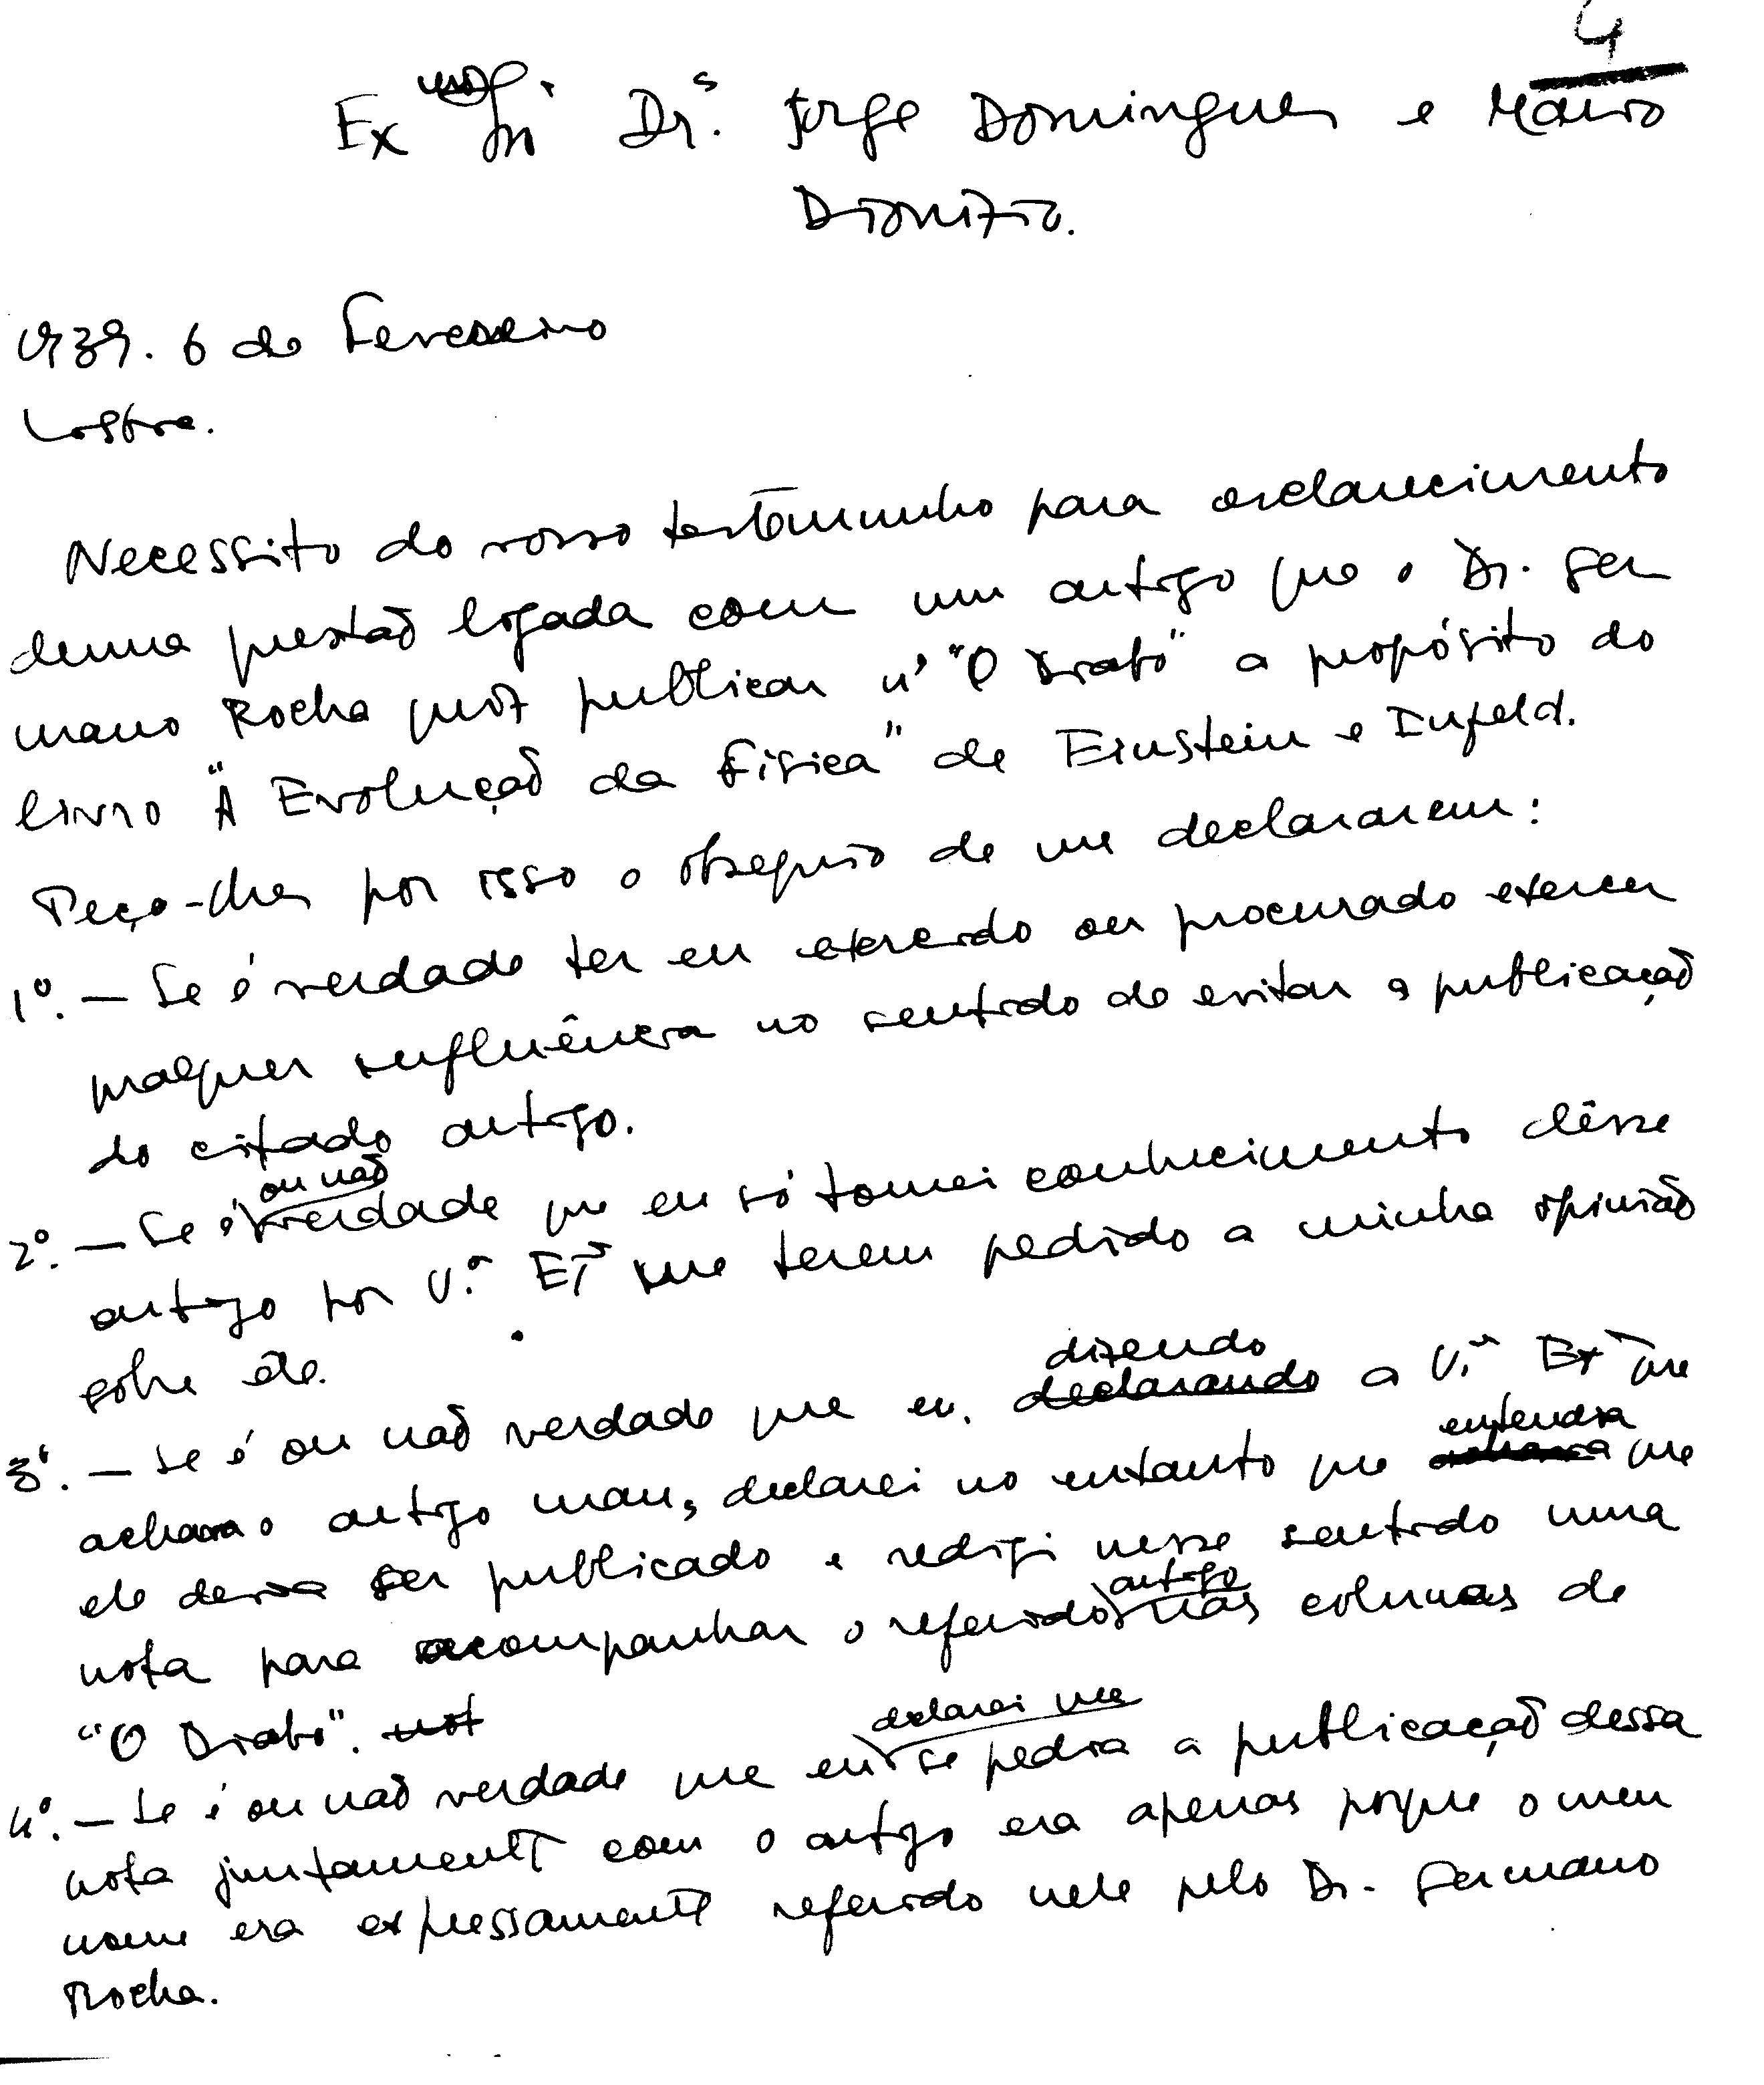 4
Exmos Srs. Drs. Jorge Domingues e Mário
Dionízio.
1939. 6 de Fevereiro
Lisboa.
Necessito do vosso testemunho para esclarecimento
duma questão ligada com um artigo que o Dr. Ger
mano Rocha quiz publicar n' "O Diabo" a propósito do
livro "A Evolução da Física" de Einstein e Infeld.
Peço-lhes por isso o obsequio de me declararem:
1º. — Se é verdade ter eu exercido ou procurado exercer
qualquer influência no sentido de evitar a publicação
do citado artigo.
2º. — Se é ou não verdade que eu só tomei conhecimento dêsse
artigo por V.as Exas me terem pedido a minha opinião
sobre êle.
3º. — Se é ou não verdade que eu, declarando dizendo a V.as Exas que
achava o artigo mau, declarei no entanto que achava entendia que
ele devia ser publicado e redigi nesse sentido uma
nota para acompanhar o referido artigo nas colunas de
"O Diabo". not
4º. — Se é ou não verdade que eu declarei que se pedia a publicação dessa
nota juntamente com o artigo era apenas porque o meu
nome era expressamente referido nele pelo Dr. Germano
Rocha.